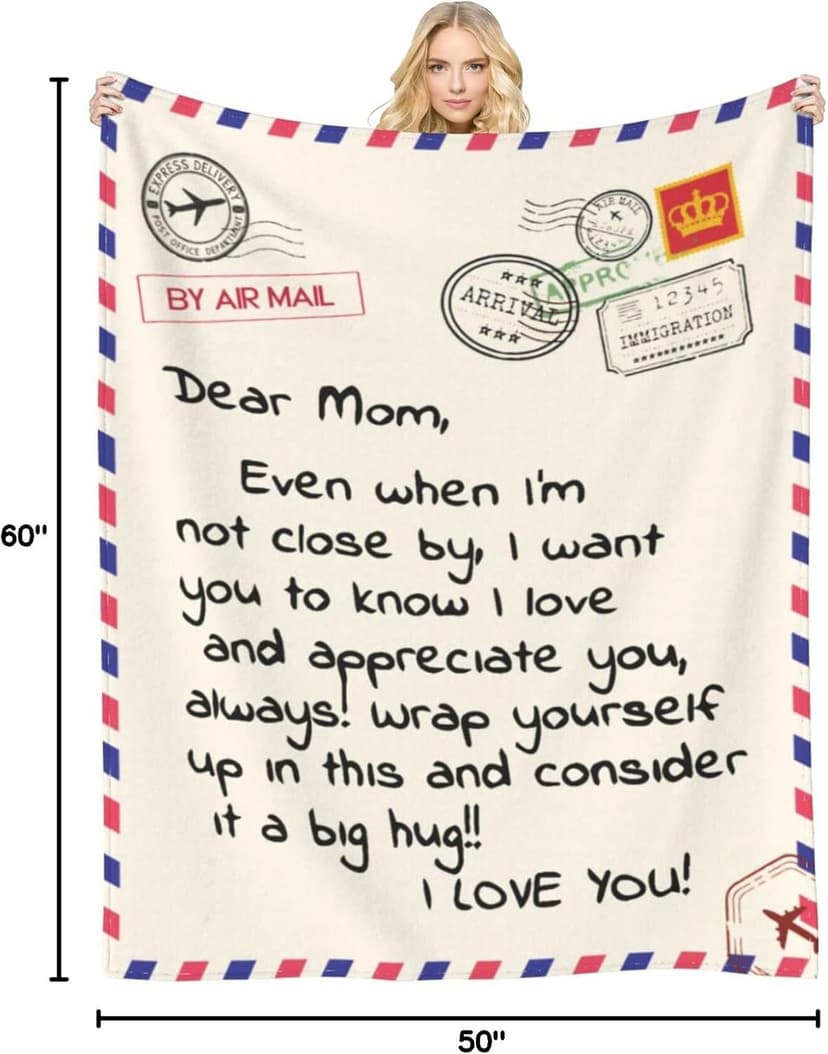 EXPRESS DELIVERY
POST OFFICE DEPARTMENT
AIR MAIL
BY AIR MAIL
ARRIVAL
12345
IMMIGRATION
Dear Mom,
Even when I'm
not close by, I want
you to know I love
and appreciate you,
always! wrap yourself
up in this and consider
it a big hug!!
I LOVE YOU!
60"
50"